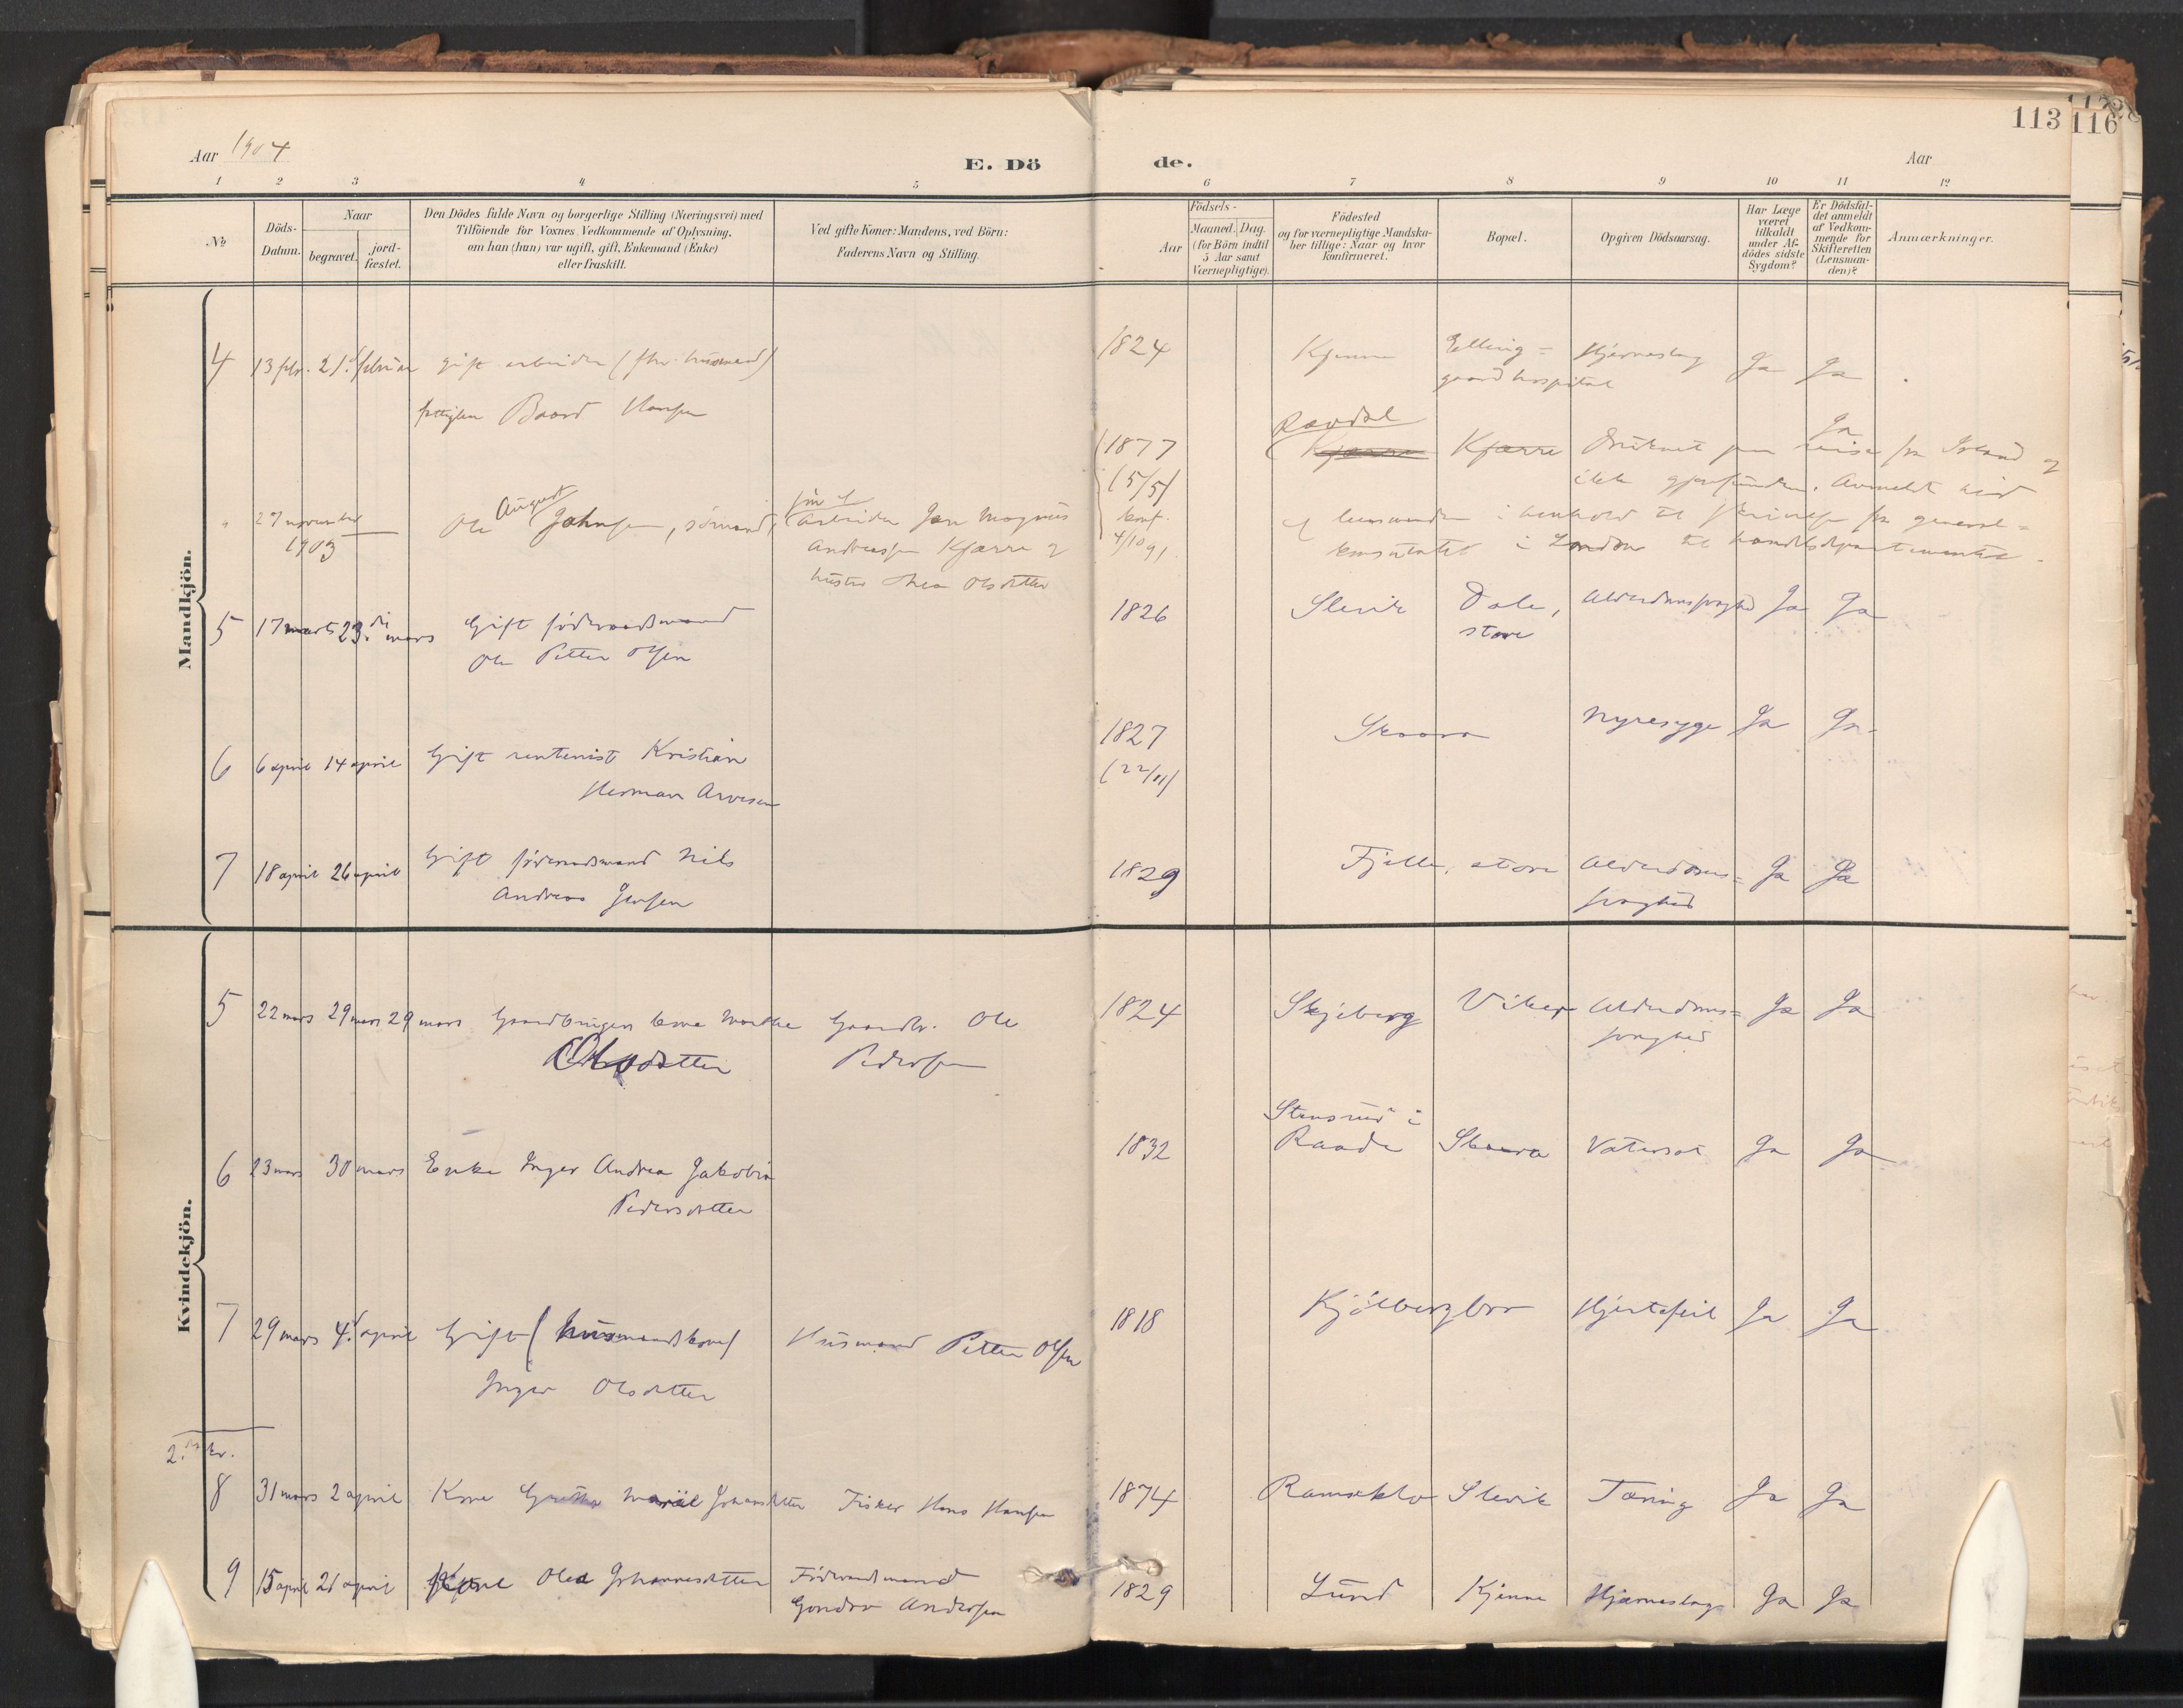 113 116
Aar 1904
E. Dö de.
Aar
1 2 3 4 5 6 7 8 9 10 11 12
№
Döds-
Datum.
Naar
begravet.
jord-
fæstet.
Den Dödes fulde Navn og borgerlige Stilling (Næringsvei) med
Tilföiende for Voxnes Vedkommende af Oplysning,
om han (hun) var ugift, gift, Enkemand (Enke)
eller fraskilt.
Ved gifte Koner: Mandens, ved Börn:
Faderens Navn og Stilling.
Födsels-
Aar
Maaned. Dag.
(for Börn indtil
5 Aar samt
Værnepligtige).
Födested
og for værnepligtige Mandska-
ber tillige: Naar og hvor
konfirmeret.
Bopæl.
Opgiven Dödsaarsag.
Har Læge
været
tilkaldt
under Af-
dödes sidste
Sygdom?
Er Dödsfal-
det anmeldt
af Vedkom-
mende for
Skifteretten
(Lensman-
den)?
Anmærkninger.
Mandkjön.
4 13 febr. 21. februar gift arbeider (fhv. husmand) 1824 Kjenne Elling= Hjerneslag Ja Ja
gaard hospital
Baard Hansen
" 27 november Ole August Johnsen, sömand, sön af 1877 Kjærre Kjærre Druknet paa reise fra Island og
1903 arbeider Jon Magnus (5/5) ikke gjenfunden. Anmeldt ved
Andreassen Kjærre og konf. lensmanden i henhold til skrivelse fra general=
hustru Thea Olsdatter 4/10 91. konsulatet i London til handelsdepartementet.
Ja
5 17 marts 23. mars Gift föderaadsmand 1826 Slevik Dale, Alderdomssvaghed Ja Ja
Ole Petter Olsen store
6 6 april 14 april Gift rentenist Kristian 1827 Skaara Nyresyge Ja Ja.
Herman Arvesen (22/11)
7 18 april 26 april Gift föderaadsmand Nils 1829 Fjelle, store Alderdoms= Ja Ja
Andreas Jensen svaghed
Kvindekjön.
5 22 mars 29 mars 29 mars Gaardbrugers kone Marthe Gaardbr. Ole 1824 Skjeberg Viker Alderdoms= Ja Ja
Olsdatter Pedersen svaghed
6 23 mars 30 mars Enke Inger Andrea Jakobine 1832 Raade Skaara Vatersot Ja Ja
Pedersdatter
7 29 mars 4. april Gift (husmandskone) Husmand Petter Olsen 1818 Kjölbergbro Hjertefeil Ja Ja
Inger Olsdatter
8 31 mars 2 april Kone Johansdatter Fisker Hans Hansen 1874 Ramseklo Slevik Tæring Ja Ja
9 15 april 21 april Kone Olea Johannesdatter Föderaadsmand 1829 Lund Kjenne Hjerneslag Ja Ja
Andersen